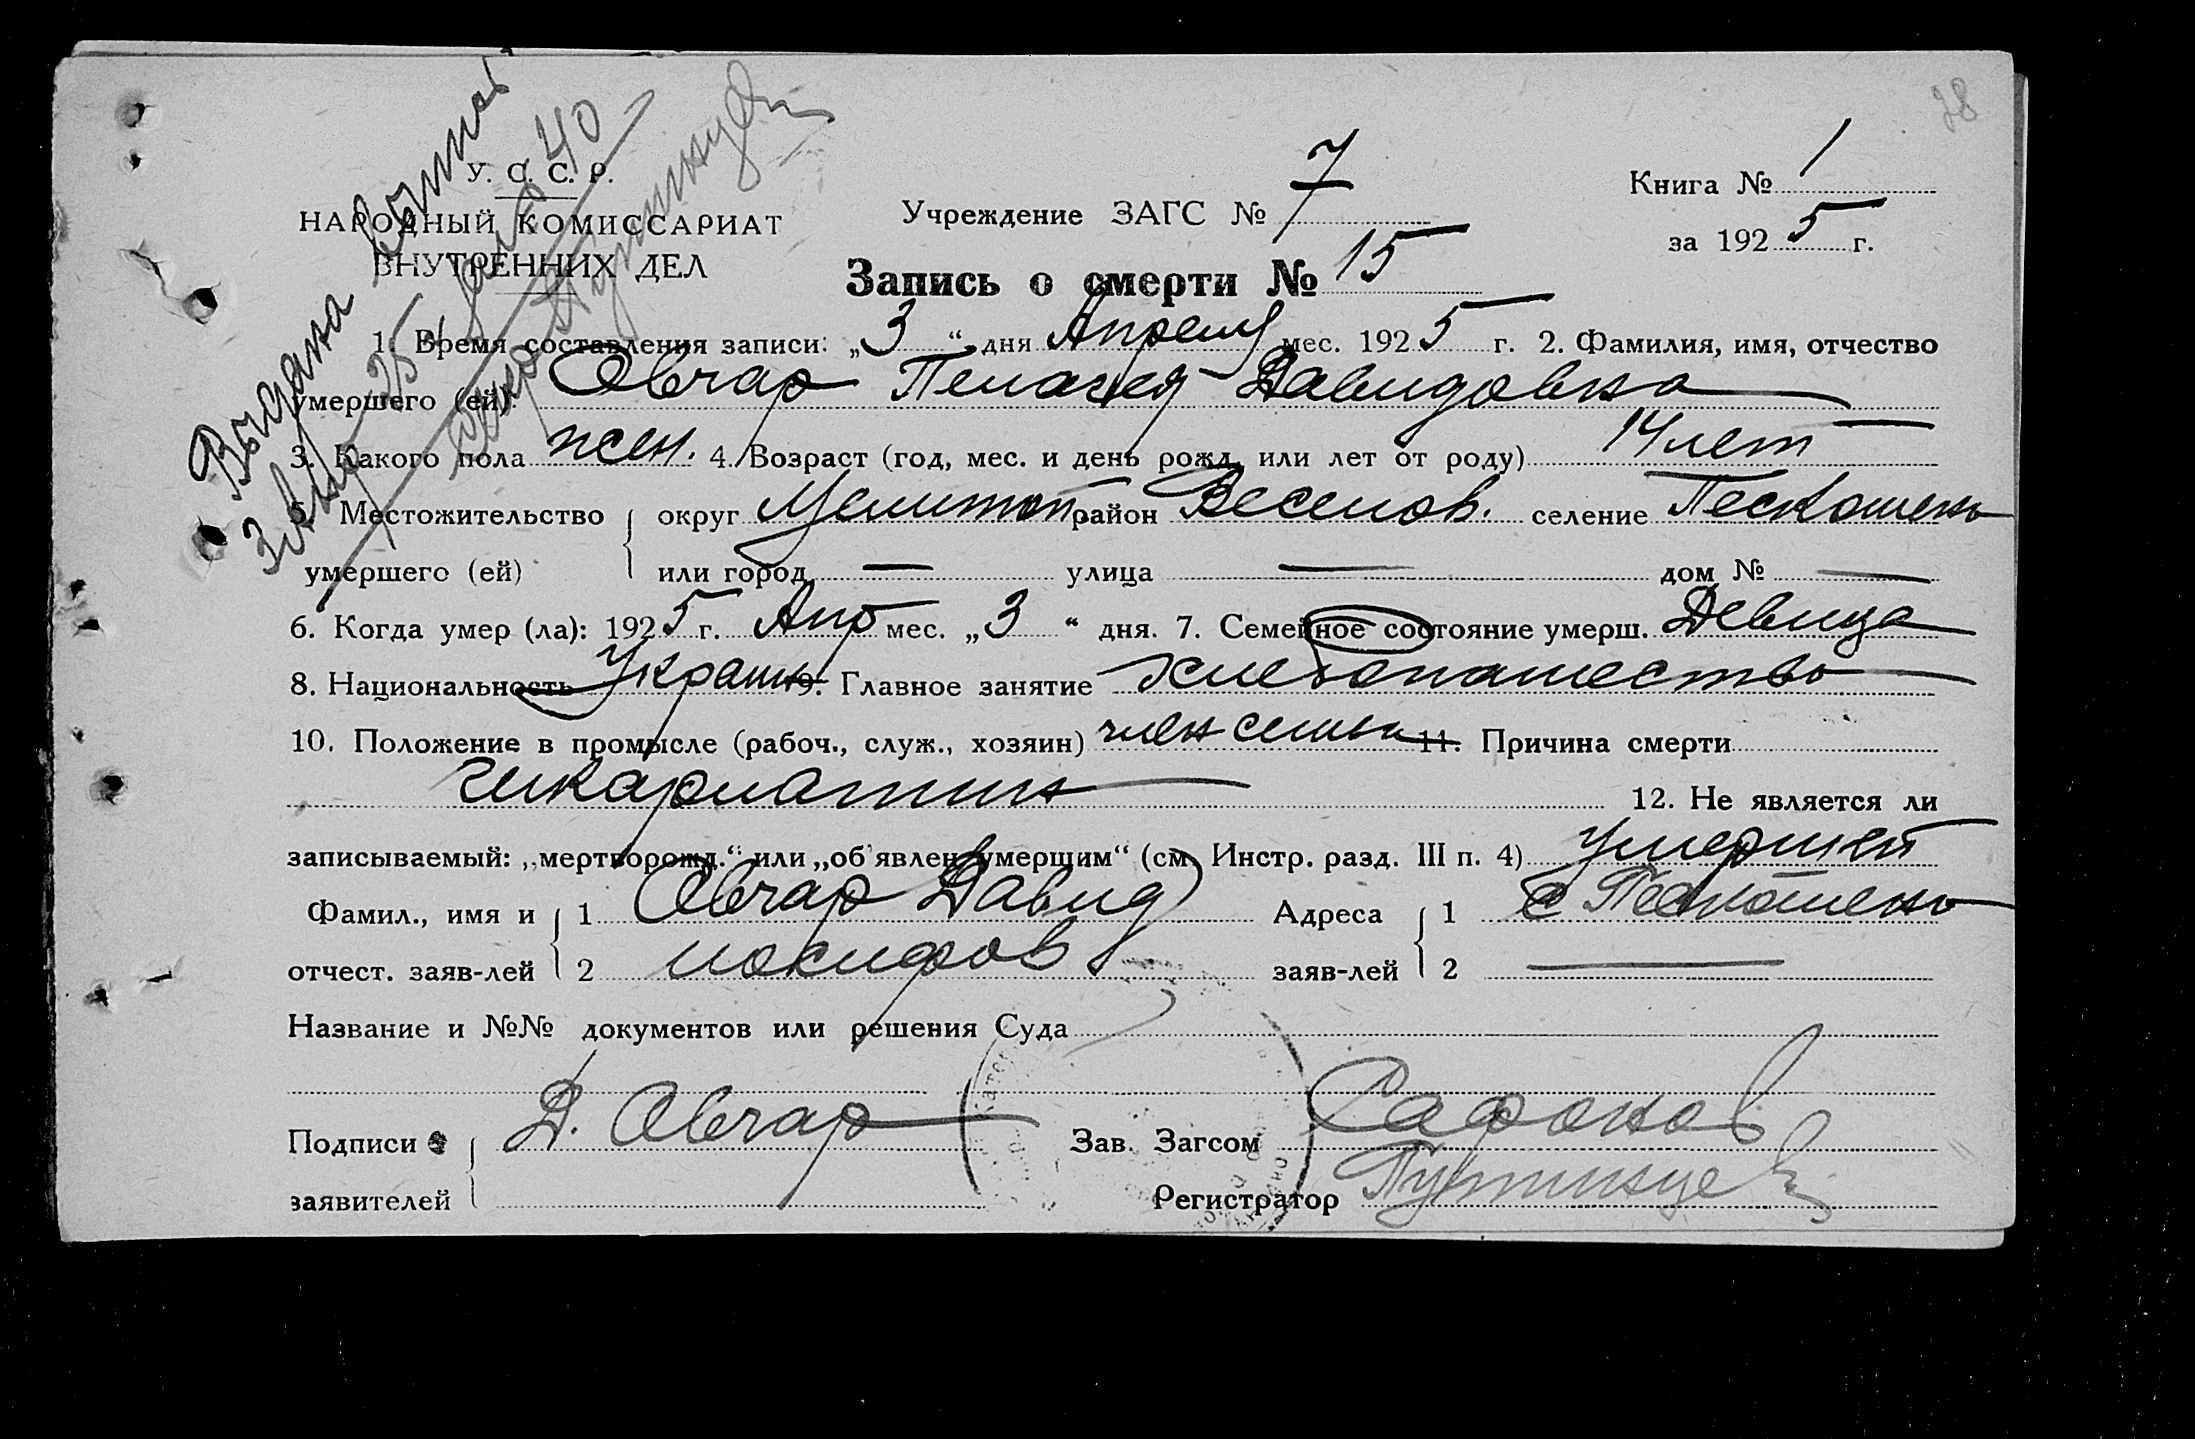 78
У. С. С. Р.
НАРОДНЫЙ КОМИССАРИАТ
ВНУТРЕННИХ ДЕЛ
Выдана выпись
Учреждение ЗАГС № 7
Книга № 1
за 1925 г.
Запись о смерти № 15
1. Время составления записи: „3“ дня Апреля мес. 1925 г. 2. Фамилия, имя, отчество
умершего (ей): Овчар Пелагея Давидовна
3. Какого пола жен. 4. Возраст (год, мес. и день рожд. или лет от роду) 14 лет
5. Местожительство округ Мелитоп. район Веселов. селение Пескошено
умершего (ей) или город — улица — дом № —
6. Когда умер (ла): 1925 г. Апр мес. „3“ дня. 7. Семейное состояние умерш. Девица
8. Национальность Украин 9. Главное занятие хлебопашество
10. Положение в промысле (рабоч., служ., хозяин) член семьи 11. Причина смерти
скарлатин
12. Не является ли
записываемый: „мертворожд.“ или „об'явлен умершим“ (см. Инстр. разд. III п. 4) умершей
Фамил., имя и 1 Овчар Давид Адреса 1 с Пескошено
отчест. заяв-лей 2 заяв-лей 2 —
Название и №№ документов или решения Суда
Подписи Д. Овчар Зав. Загсом Сафонов
заявителей Регистратор Путинцев